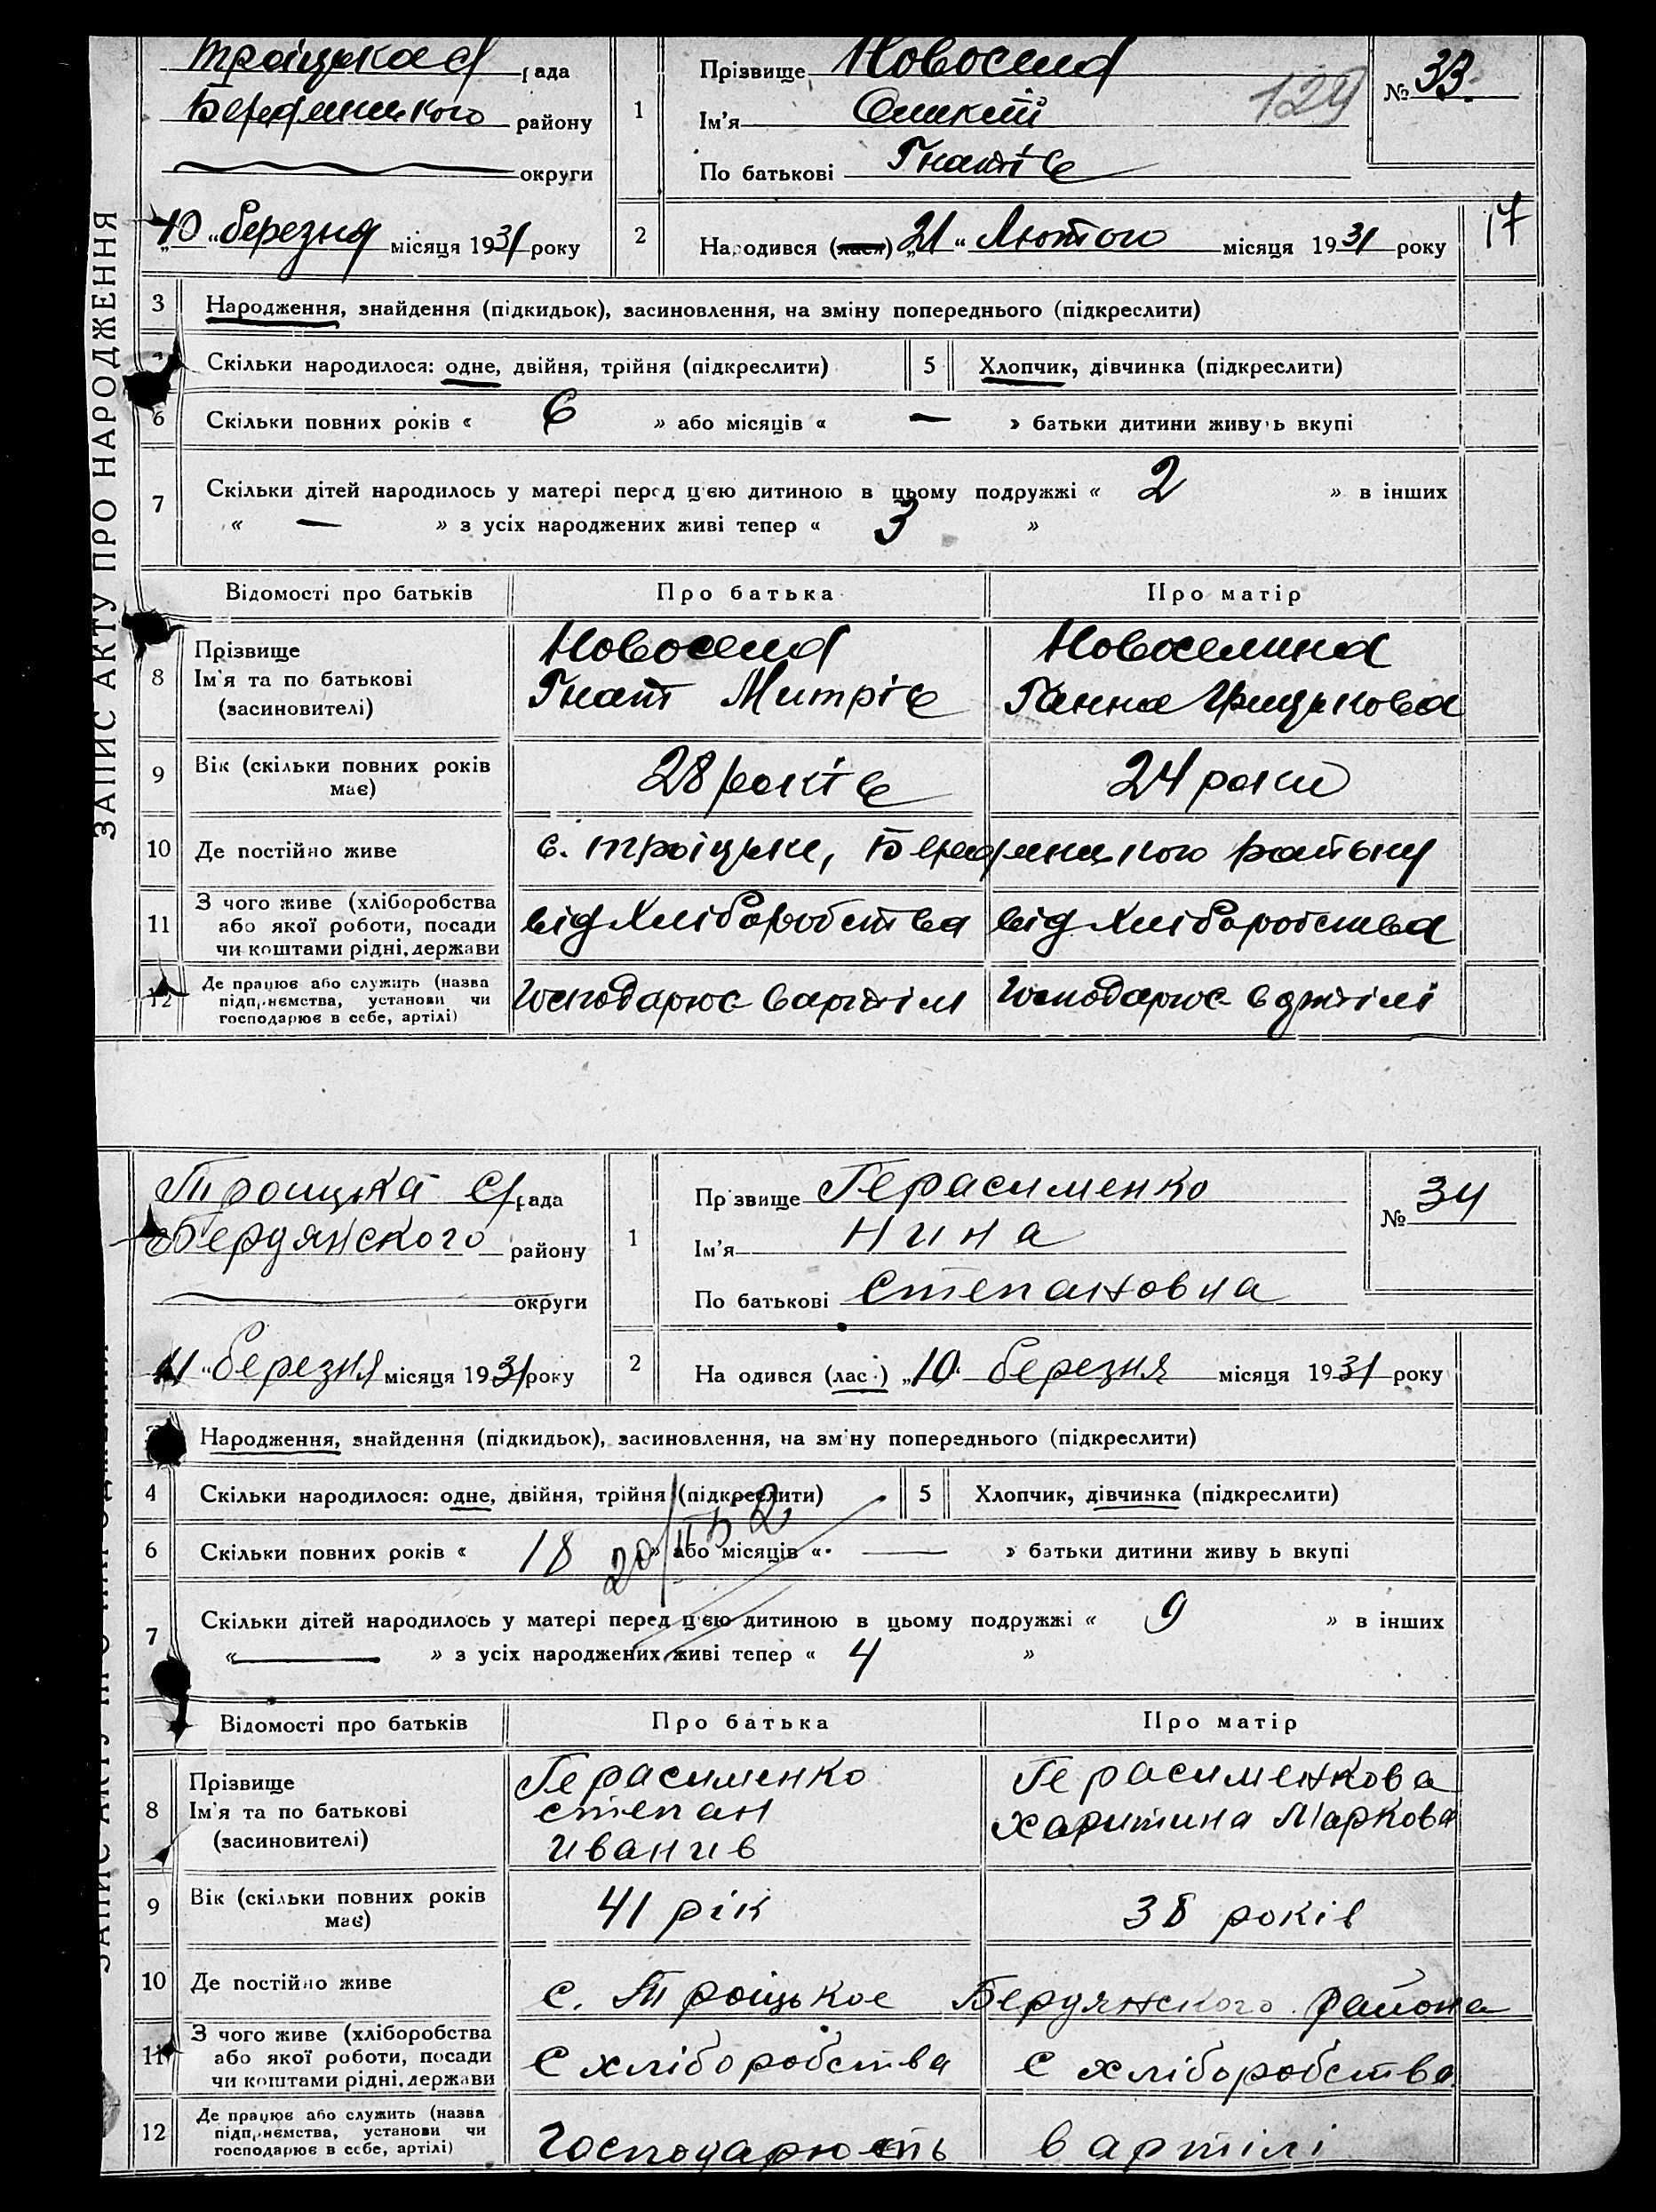 ЗАПИС АКТУ ПРО НАРОДЖЕННЯ
Троіцька с/рада
Бердянського району
округи
„10“ березня місяця 1931 року
1
Прізвище Новосела
Ім'я
По батькові Гнатів
129
№ 33
2
Народився (лася) „21“ Лютого місяця 1931 року
17
3 Народження, знайдення (підкидьок), засиновлення, на зміну попереднього (підкреслити)
Скільки народилося: одне, двійня, трійня (підкреслити) 5 Хлопчик, дівчинка (підкреслити)
6 Скільки повних років « 6 » або місяців « — » батьки дитини живуть вкупі
7 Скільки дітей народилось у матері перед цією дитиною в цьому подружжі « 2 » в інших
« — » з усіх народжених живі тепер « 3 »
Відомості про батьків Про батька Про матір
8 Прізвище Новосела Новоселина
Ім'я та по батькові Гнат Митрів Ганна Грицькова
(засиновителі)
9 Вік (скільки повних років має) 28 років 24 роки
10 Де постійно живе с. Троіцьке, Бердянського району
11 З чого живе (хліборобства або якої роботи, посади чи коштами рідні, держави від хліборобства від хліборобства
12 Де працює або служить (назва підприємства, установи чи господарює в себе, артілі) Господарює в артілі Господарює в артілі
Троицка с/рада
Бердянского району
округи
„11“ березня місяця 1931 року
1
Прізвище Герасименко
Ім'я Нина
По батькові Степановна
№ 34
2
На одився (лас.) „10“ березня місяця 1931 року
Народження, знайдення (підкидьок), засиновлення, на зміну попереднього (підкреслити)
4 Скільки народилося: одне, двійня, трійня (підкреслити) 5 Хлопчик, дівчинка (підкреслити)
6 Скільки повних років « 18 » або місяців « — » батьки дитини живу ь вкупі
7 Скільки дітей народилось у матері перед цією дитиною в цьому подружжі « 9 » в інших
« — » з усіх народжених живі тепер « 4 »
Відомості про батьків Про батька Про матір
8 Прізвище Герасименко Герасименкова
Ім'я та по батькові Степан Харитина Маркова
(засиновителі) Иванив
9 Вік (скільки повних років має) 41 рік 38 років
10 Де постійно живе с. Троіцькое Бердянского района
11 З чого живе (хліборобства або якої роботи, посади чи коштами рідні, держави С хліборобства С хліборобства
12 Де працює або служить (назва підприємства, установи чи господарює в себе, артілі) Господарюють в артілі